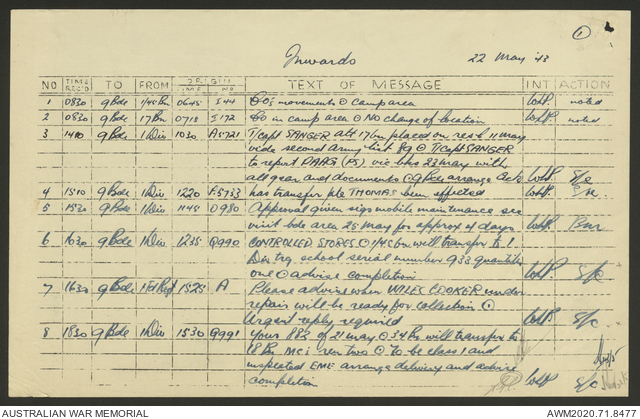 1
Inwards 22 May '43
NO TIME REC'D TO FROM ORIGIN TIME NO TEXT OF MESSAGE INT ACTION
1 0830 9 Bde 1/45 Bn 0645 I44 movements ⊙ Camp area noted
2 0830 9 Bde 17 Bn 0715 I172 in camp area ⊙ No change of location noted
3 1410 9 Bde 1 Div 1030 A5721 T/Capt SANGER att 17 bn placed on res 11 May
vide second army list 89 ⊙ T/Capt SANGER
to report DAAG (PS) 23 May with
all gear and documents ⊙ 9 Bde arrange S/c
4 1510 9 Bde 1 Div 1220 A5733 has transfer pte THOMAS been effected
5 1530 9 Bde 1 Div 1145 O980 Approval given sigs mobile maintenance sec
visit bde area 25 May for approx 4 days
6 1630 9 Bde 1 Div 1235 Q990 CONTROLLED STORES ⊙ 1/45 bn will transfer to 1
Div trg school serial number 933 quantity
one ⊙ advise completion S/c
7 1630 9 Bde 1525 A Please advise when WILES COOKER under
repair will be ready for collection ⊙
Urgent reply required S/c
8 1830 9 Bde 1 Div 1530 Q991 Your 882 of 21 May ⊙ 34 Bn will transfer to
18 Bn two ⊙ To be class 1 and
inspected EME arrange delivery and advise
completion S/c
AUSTRALIAN WAR MEMORIAL AWM2020.71.8477